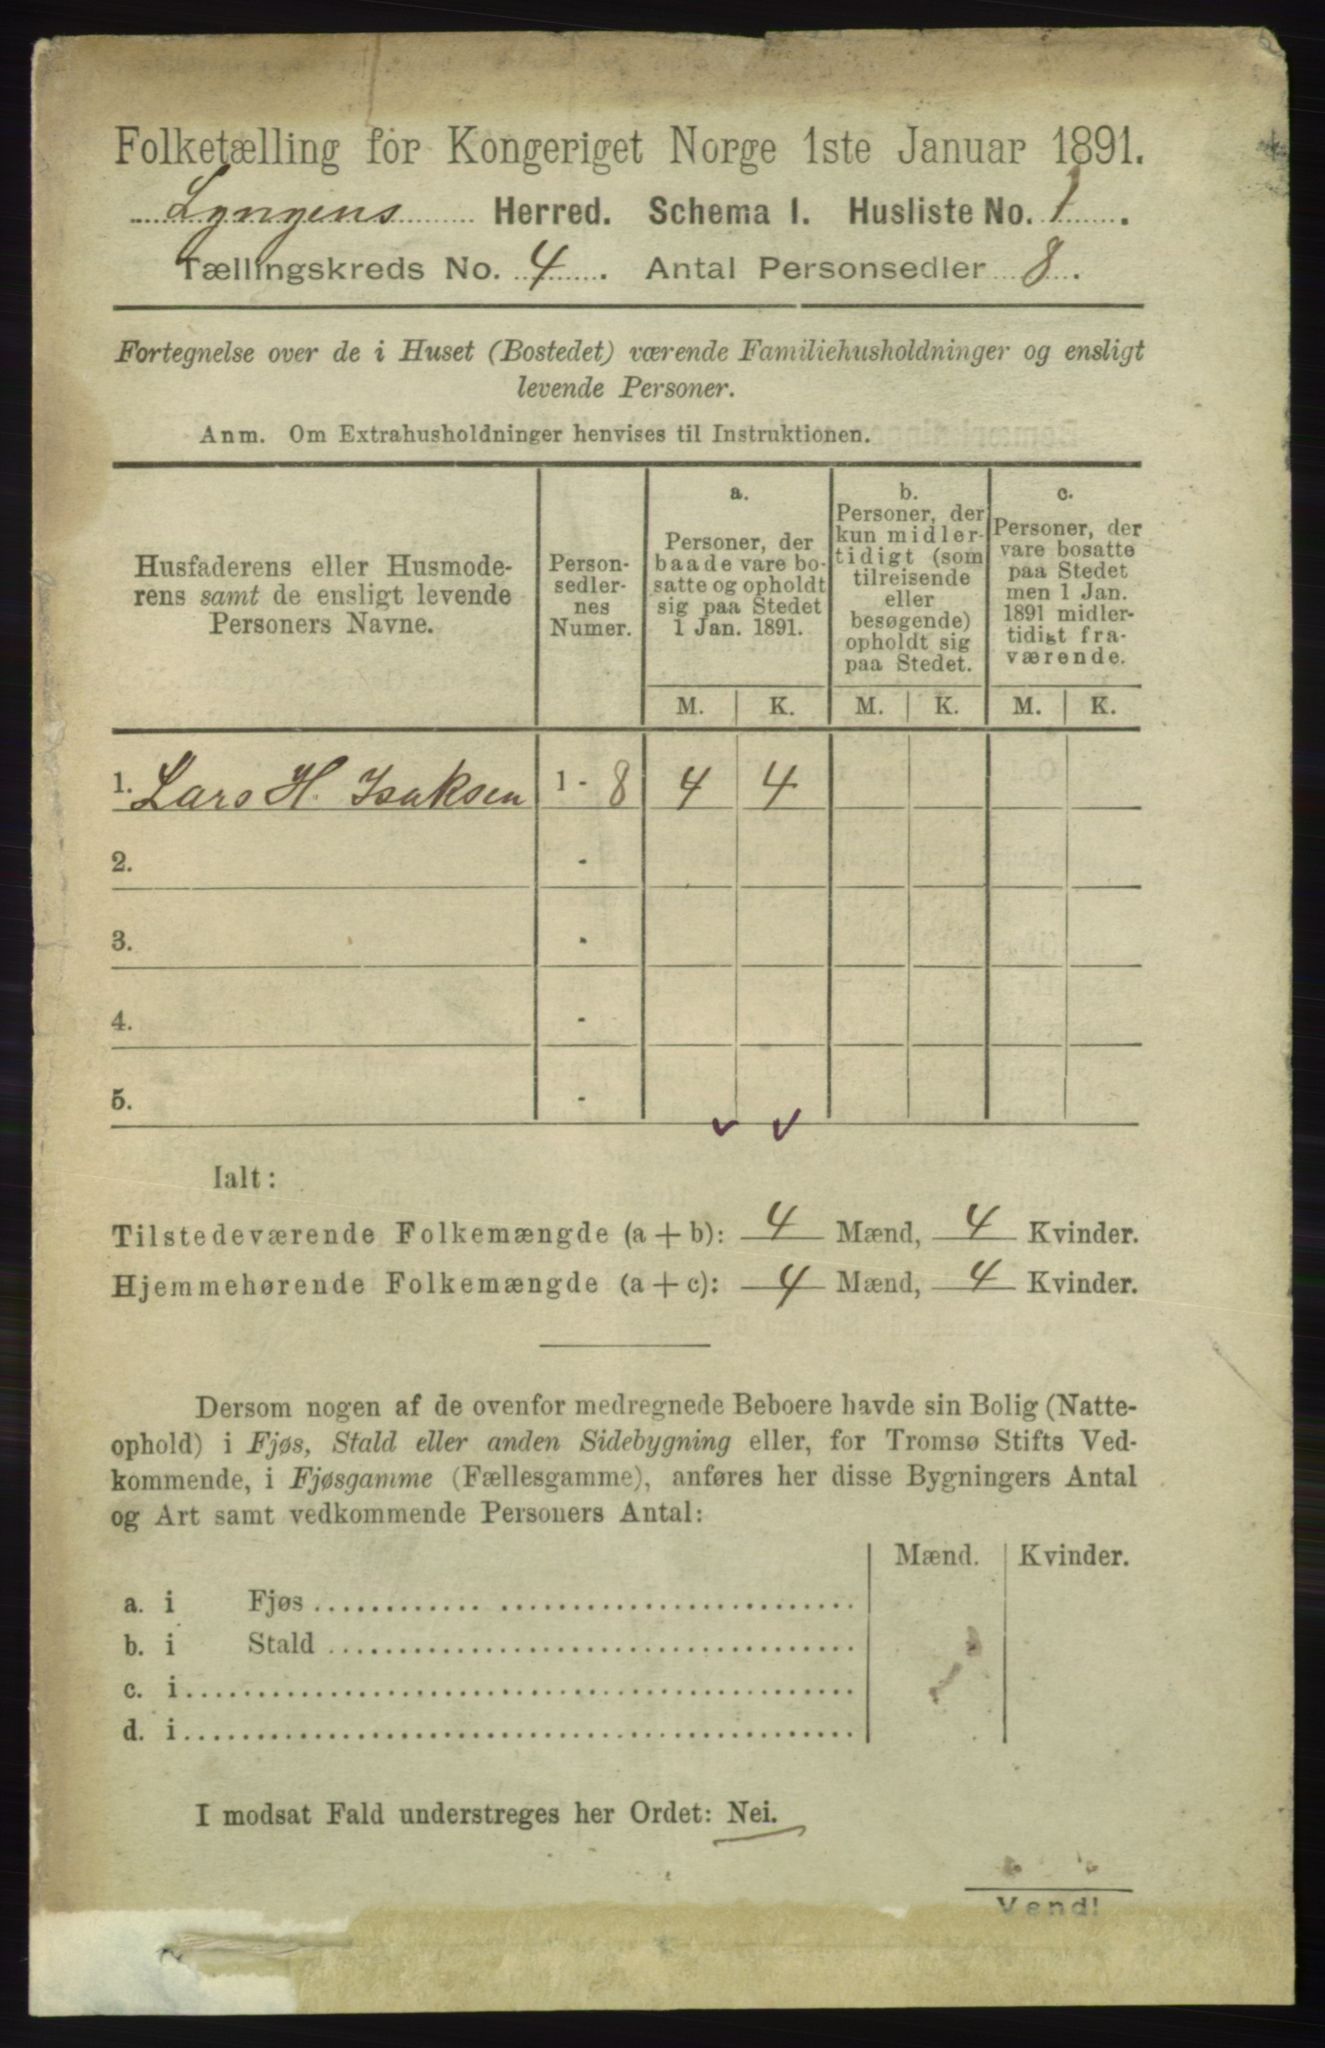 Folketælling for Kongeriget Norge 1ste Januar 1891.
Lyngens Herred. Schema I. Husliste No. 1.
Tællingskreds No. 4. Antal Personsedler 8.
Fortegnelse over de i Huset (Bostedet) værende Familiehusholdninger og ensligt
levende Personer.
Anm. Om Extrahusholdninger henvises til Instruktionen.
Husfaderens eller Husmode-
rens samt de ensligt levende
Personers Navne.
Person-
sedler-
nes
Numer.
a.
Personer, der
baade vare bo-
satte og opholdt
sig paa Stedet
1 Jan. 1891.
b.
Personer, der
kun midler-
tidigt (som
tilreisende
eller
besøgende)
opholdt sig
paa Stedet.
c.
Personer, der
vare bosatte
paa Stedet
men 1 Jan.
1891 midler-
tidigt fra-
værende.
M. K. M. K. M. K.
1. Lars H. Isaksen 1 - 8 4 4
2. -
3. -
4. -
5. -
Ialt:
Tilstedeværende Folkemængde (a + b): 4 Mænd, 4 Kvinder.
Hjemmehørende Folkemængde (a + c): 4 Mænd, 4 Kvinder.
Dersom nogen af de ovenfor medregnede Beboere havde sin Bolig (Natte-
ophold) i Fjøs, Stald eller anden Sidebygning eller, for Tromsø Stifts Ved-
kommende, i Fjøsgamme (Fællesgamme), anføres her disse Bygningers Antal
og Art samt vedkommende Personers Antal:
Mænd. Kvinder.
a. i Fjøs
b. i Stald
c. i
d. i
I modsat Fald understreges her Ordet: Nei.
Vend!